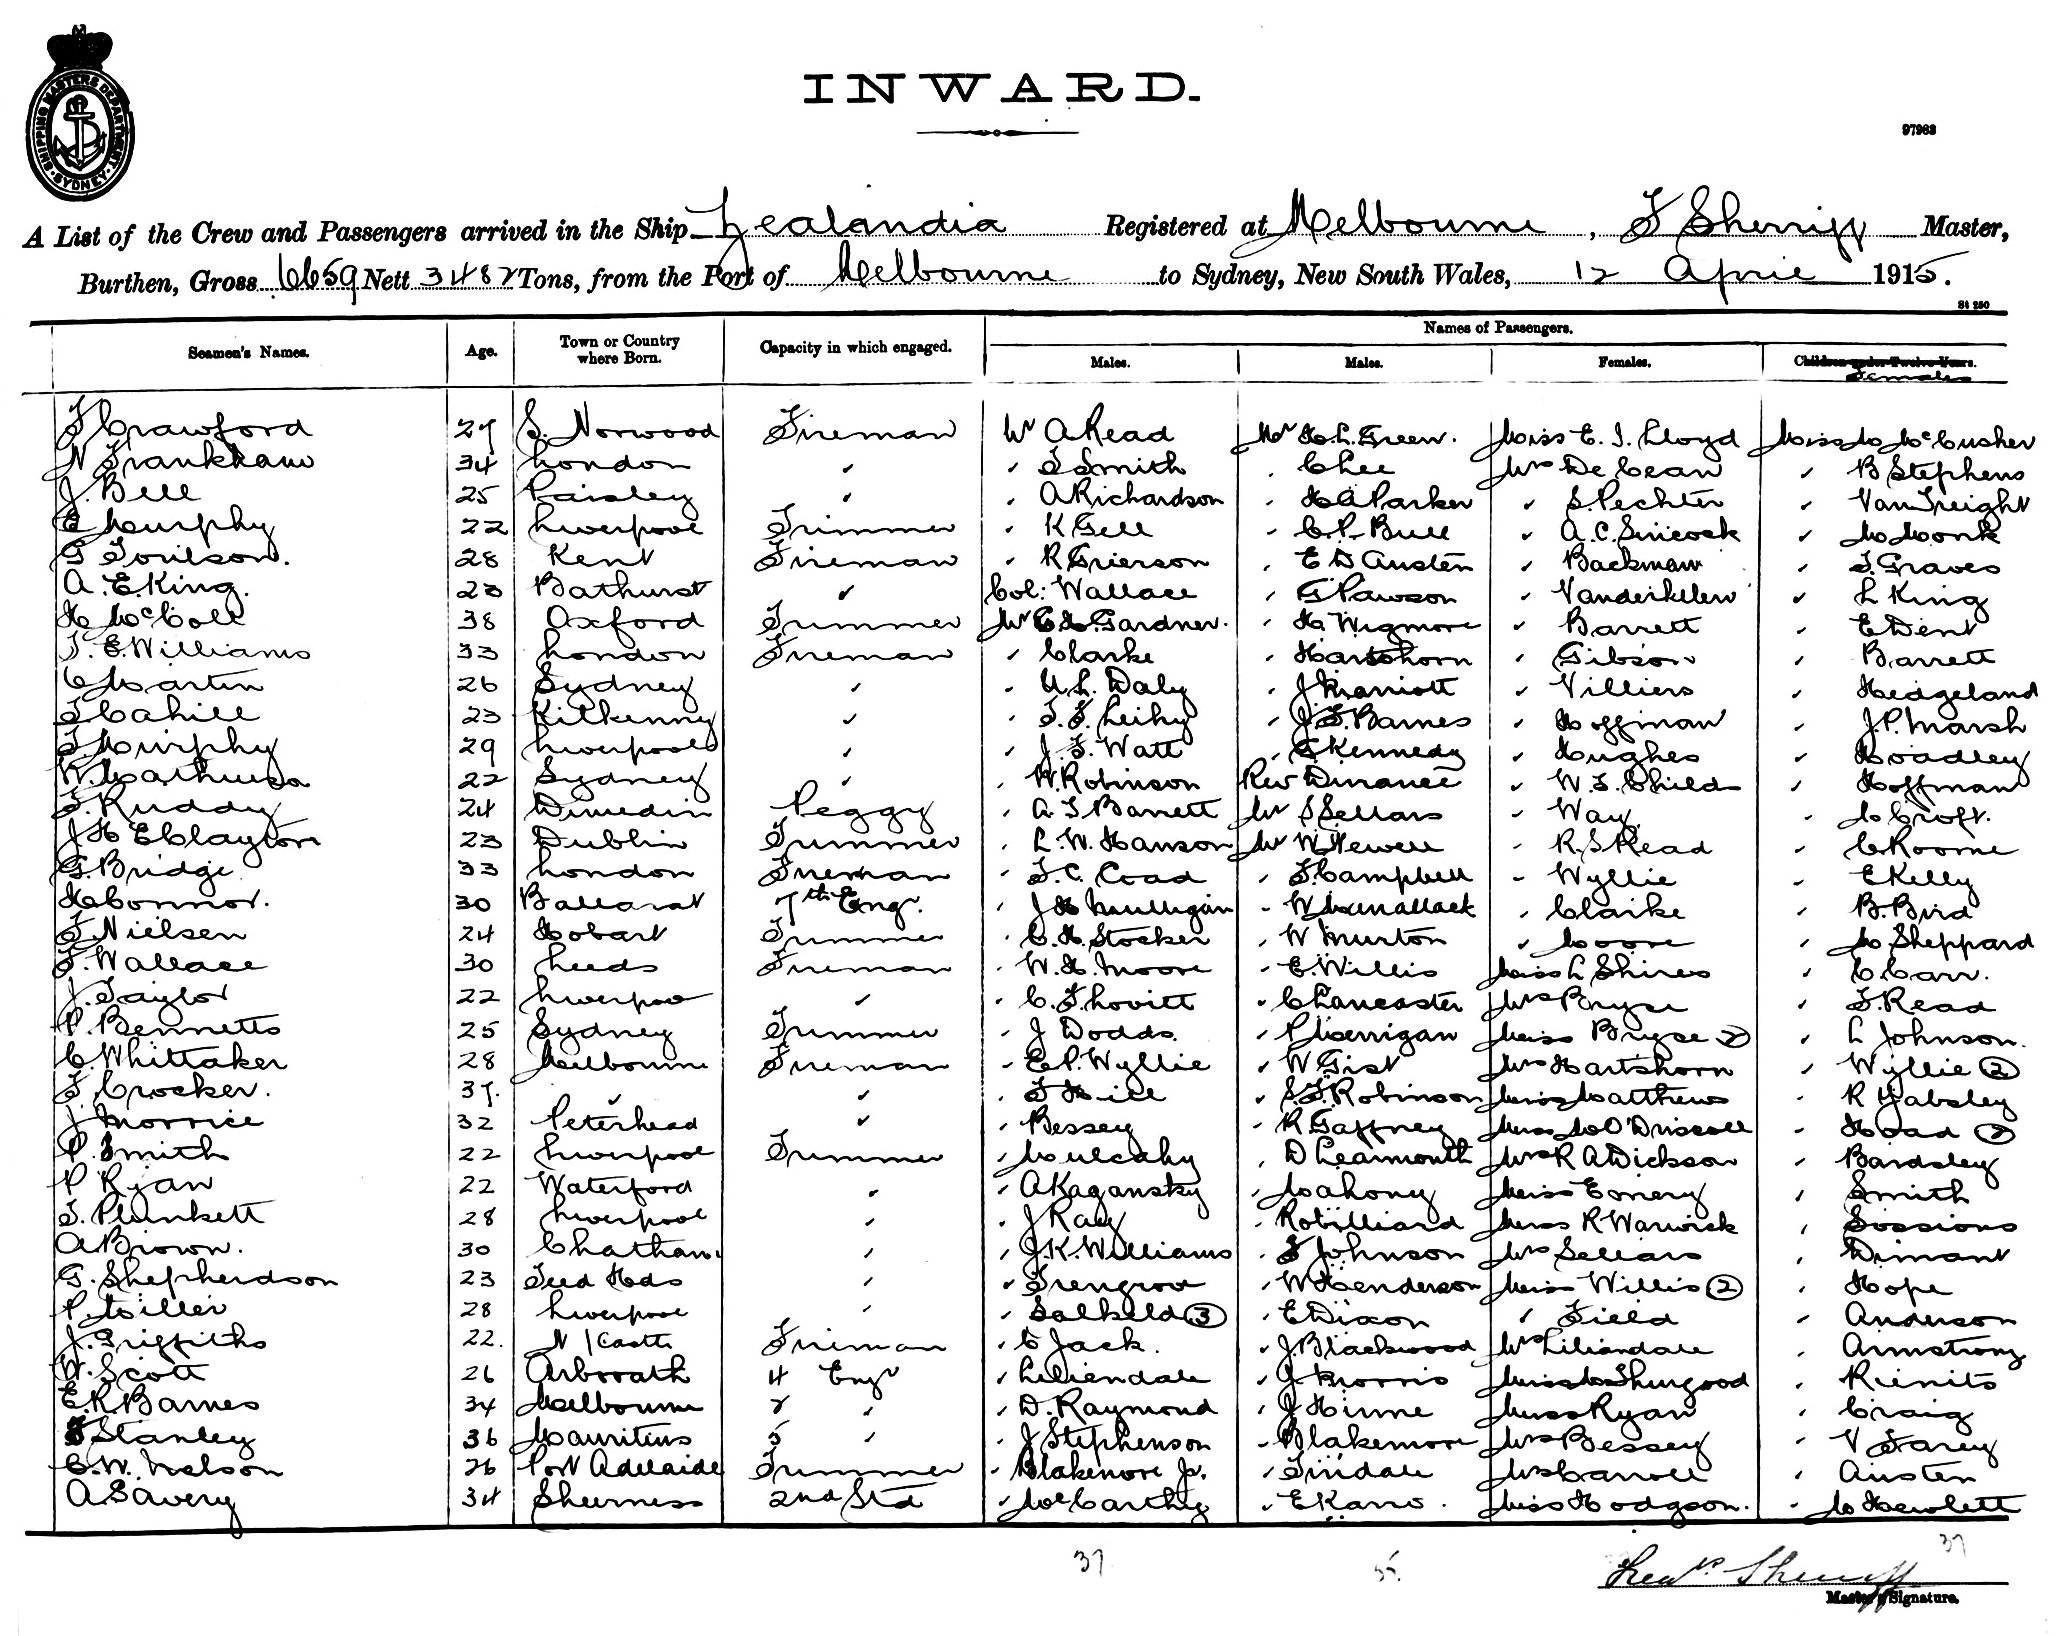 SHIPPING MASTERS DEPARTMENT · SYDNEY ·
INWARD.
97963
A List of the Crew and Passengers arrived in the Ship Zealandia Registered at Melbourne, F Sherriff Master,
Burthen, Gross 6659 Nett 3482 Tons, from the Port of Melbourne to Sydney, New South Wales, 12 April 1915.
St 250
Names of Passengers.
Seamen's Names. Age. Town or Country where Born. Capacity in which engaged. Males. Males. Females. Children under Twelve Years. Females
F Crawford 27 S. Norwood Fireman Mr A Read Mr H. L. Green. Miss E. J. Lloyd Miss M McCusker
N Frankham 34 London " " F Smith " Chee Mrs De Cean " B Stephens
J. Bell 25 Paisley " " A Richardson " H A Parker " S. Pechter " VanTreight
C Murphy 22 Liverpool Trimmer " K Gell " C. P. Bull " A. C. Sincock " M Monk
G Toulson. 28 Kent Fireman " R Grierson " E D Austen " Backman " J. Graves
A. E. King. 23 Bathurst " Col: Wallace " G Pawson " Vanderkelen " L King
H McColl 38 Oxford Trimmer Mr C. H. Gardner. " H Wigmore " Barrett " E Dent
T. E. Williams 33 London Fireman " Clarke " Hartshorn " Gibson " Barrett
C Martin 26 Sydney " " U. L. Daly " J Marriott " Villiers " Hedgeland
T Cahill 23 Kilkenny " " T. F. Leihy " J. F. Barnes " Hoffman " J. P. Marsh
T. Murphy 29 Liverpool " " J. F. Watt " G Kennedy " Hughes " Hoadley
W. Mathieson 22 Sydney " " W. Robinson Rev Dinanee " W. J. Childs " Hoffman
F. Ruddy 24 Dunedin Peggy " A. F Barrett Mr S Sellars " Way " M Croft.
J. H E Clayton 23 Dublin Trimmer " L. W. Hanson Mr W Newell " R. S Read " C. Roome
G. Bridge. 33 London Fireman " F. C. Coad " F. Campbell " Wyllie " E Kelly
H Connor. 30 Ballarat 7th Engr. " J H Mulligan " W Menallack " Clarke " B. Bird
F. Nielsen 24 Hobart Trimmer " C. H. Stocker " W Murton " Moore " M Sheppard
F. Wallace 30 Leeds Fireman " W. H. Moore " E. Willis Miss L Shires " C Carr.
J. Taylor 22 Liverpool " " C. F. Lovitt " C Lancaster Mrs Bryse " F. Read
P. Bennetts 25 Sydney Trimmer " J Dodds. " P Merrigan Miss Bryse 2 " L Johnson.
C. Whittaker 28 Melbourne Fireman " E. P. Wyllie " W Gist Mrs Hartshorn " Wyllie 2
F Crocker. 37. " " " F Hill " S. F. Robinson Miss Matthews " R Yabsley
J Morrice 32 Peterhead " " Bessey " R Gaffney Miss M O'Driscoll " Hoad 2
P. Smith 22 Liverpool Trimmer " Mulcahy " D Learmonth Mrs R A Dickson " Bardsley
P Ryan 22 Waterford " " A Kagansky " Mahony Miss Emery " Smith
T. Plunkett 28 Liverpool " " J Ray " Robilliard Miss R Warwick " Sossions
A Brown. 30 Chatham " " J. K. Williams " F Johnson Mrs Sellars " Dimant
G. Shepherdson 23 Teed Hds " " Trengrove " W Henderson Miss Willis 2 " Hope
P. Miller 28 Liverpool " " Salkeld 3 " E Dixon " Field " Anderson
J. Griffiths 22. N/Castle Fireman " C Jack. " J Blackwood Mrs Liliendale " Armstrong
W. Scott 26 Arbroath 4 Engr " Liliendale " J Morris Miss M Thurgood " Rienits
E. R. Barnes 34 Melbourne 2 " " D. Raymond " J Hinne Miss Ryan " Craig
F Stanley 36 Mauritius 5 " " J Stephenson " Blakemore Mrs Bessey " V Farey
C. W. Nelson 26 Port Adelaide Trimmer " Blakemore Jr. " Tindale Mrs Carroll " Austen
A Savery 34 Sheerness 2nd Std " McCarthy " E Karro. Miss Hodgson. " M Hewlett
37 35 37
Fredk Sherriff
Master's Signature.